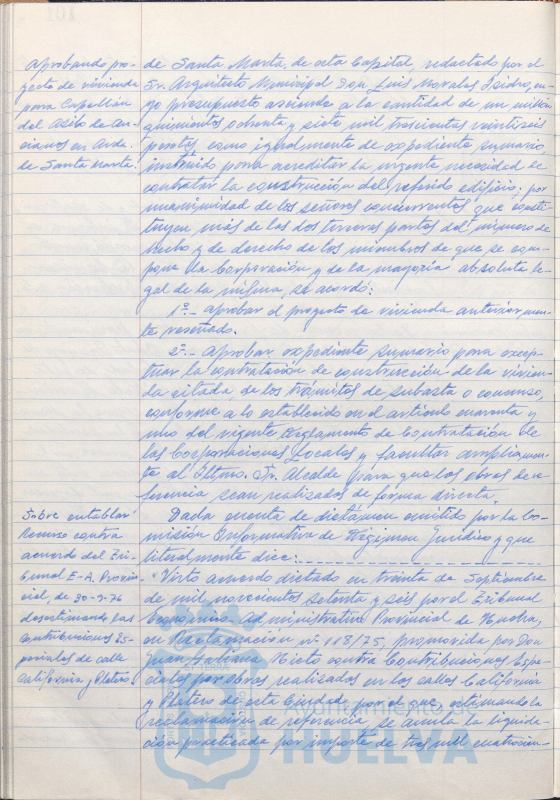 Aprobando pro-
yecto de vivienda
para Capellán
del Asilo de An-
cianos en Avda.
de Santa Marta.
de Santa Marta, de esta Capital, redactado por el
Sr. Arquitecto Municipal Don Luis Morales Isidro, cu-
yo presupuesto asciende a la cantidad de un millón
quinientas ochenta y siete mil trescientas veintiseis
pesetas, como igualmente de expediente sumario
instruido para acreditar la urgente necesidad de
contratar la construcción del referido edificio; por
unanimidad de los señores concurrentes que consti-
tuyen más de las dos terceras partes del número de
hecho y de derecho de los miembros de que se com-
pone la Corporación y de la mayoría absoluta le-
gal de la misma, se acordó:
1º.- Aprobar el proyecto de vivienda anteriormen-
te reseñado.
2º.- Aprobar expediente sumario para excep-
tuar la contratación de construcción de la vivien-
da citada, de los trámites de subasta o concurso,
conforme a lo establecido en el artículo cuarenta y
uno del vigente Reglamento de Contratación de
las Corporaciones Locales y facultar ampliamen-
te al Iltmo. Sr. Alcalde para que las obras de re-
ferencia sean realizadas de forma directa.
Sobre entablar
Recurso contra
acuerdo del Tri-
bunal E-A. Provin-
cial, de 30-9-76
desestimando las
contribuciones Es-
peciales de calle
California y Platero.
Dada cuenta de dictámen emitido por la Co-
misión Informativa de Régimen Jurídico y que
literalmente dice:
"Visto acuerdo dictado en treinta de Septiembre
de mil novecientos setenta y seis por el Tribunal
Económico-Administrativo Provincial de Huelva,
en Reclamación nº 118/75, promovida por Don
Juan Nieto contra Contribuciones Espe-
ciales por obras realizadas en las calles California
y Platero de esta Ciudad, por el que, estimando la
reclamación de referencia, se anula la liquida-
ción practicada por importe de tres mil cuatrocien-
Ayuntamiento de
HUELVA